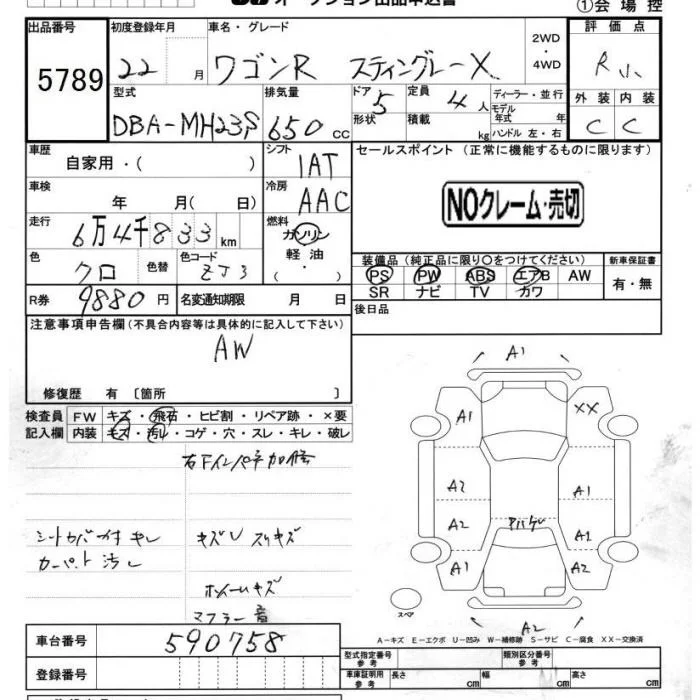 オークション出品申込書
①会場控
出品番号 初度登録年月 車名・グレード 2WD・4WD 評価点
5789 22 月 ワゴンR スティングレーX R小
型式 排気量 ドア 5 形状 定員 4 人 積載 kg ディーラー・並行 モデル年式 年 ハンドル 左・右 外装 内装
DBA-MH23S 650 cc C C
車歴 自家用・( ) シフト 1AT セールスポイント (正常に機能するものに限ります)
車検 年 月( 日) 冷房 AAC NOクレーム・売切
走行 6万4千833km 燃料 ガソリン 軽油 ・( )
色 クロ 色替 色コード ZJ3 装備品 (純正品に限り○をつけてください) 新車保証書
PS PW ABS エアB AW 有・無
SR ナビ TV カワ
R券 9880円 名変通知期限 月 日 後日品
注意事項申告欄 (不具合内容等は具体的に記入して下さい)
AW
修復歴 有 〔箇所 〕
検査員 FW キズ・飛石・ヒビ割・リペア跡・×要
記入欄 内装 キズ・汚れ・コゲ・穴・スレ・キレ・破レ
右下インパネ加修
シートカバー付 キレ キズU スリキズ
カーペット汚レ
ホイールキズ
マフラー音
A1
A1 XX
A2 A1
A2 A1
A1 A2
スペア
A2
A-キズ E-エクボ U-凹み W-補修跡 S-サビ C-腐食 XX-交換済
車台番号 590758
登録番号
型式指定番号 参考 類別区分番号 参考
車庫証明用 参考 長さ cm 幅 cm 高さ cm